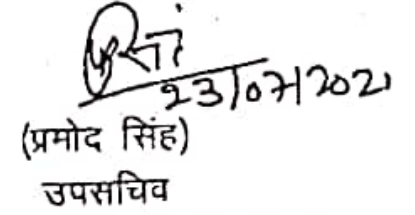 23/07/2021
(प्रमोद सिंह)
उपसचिव